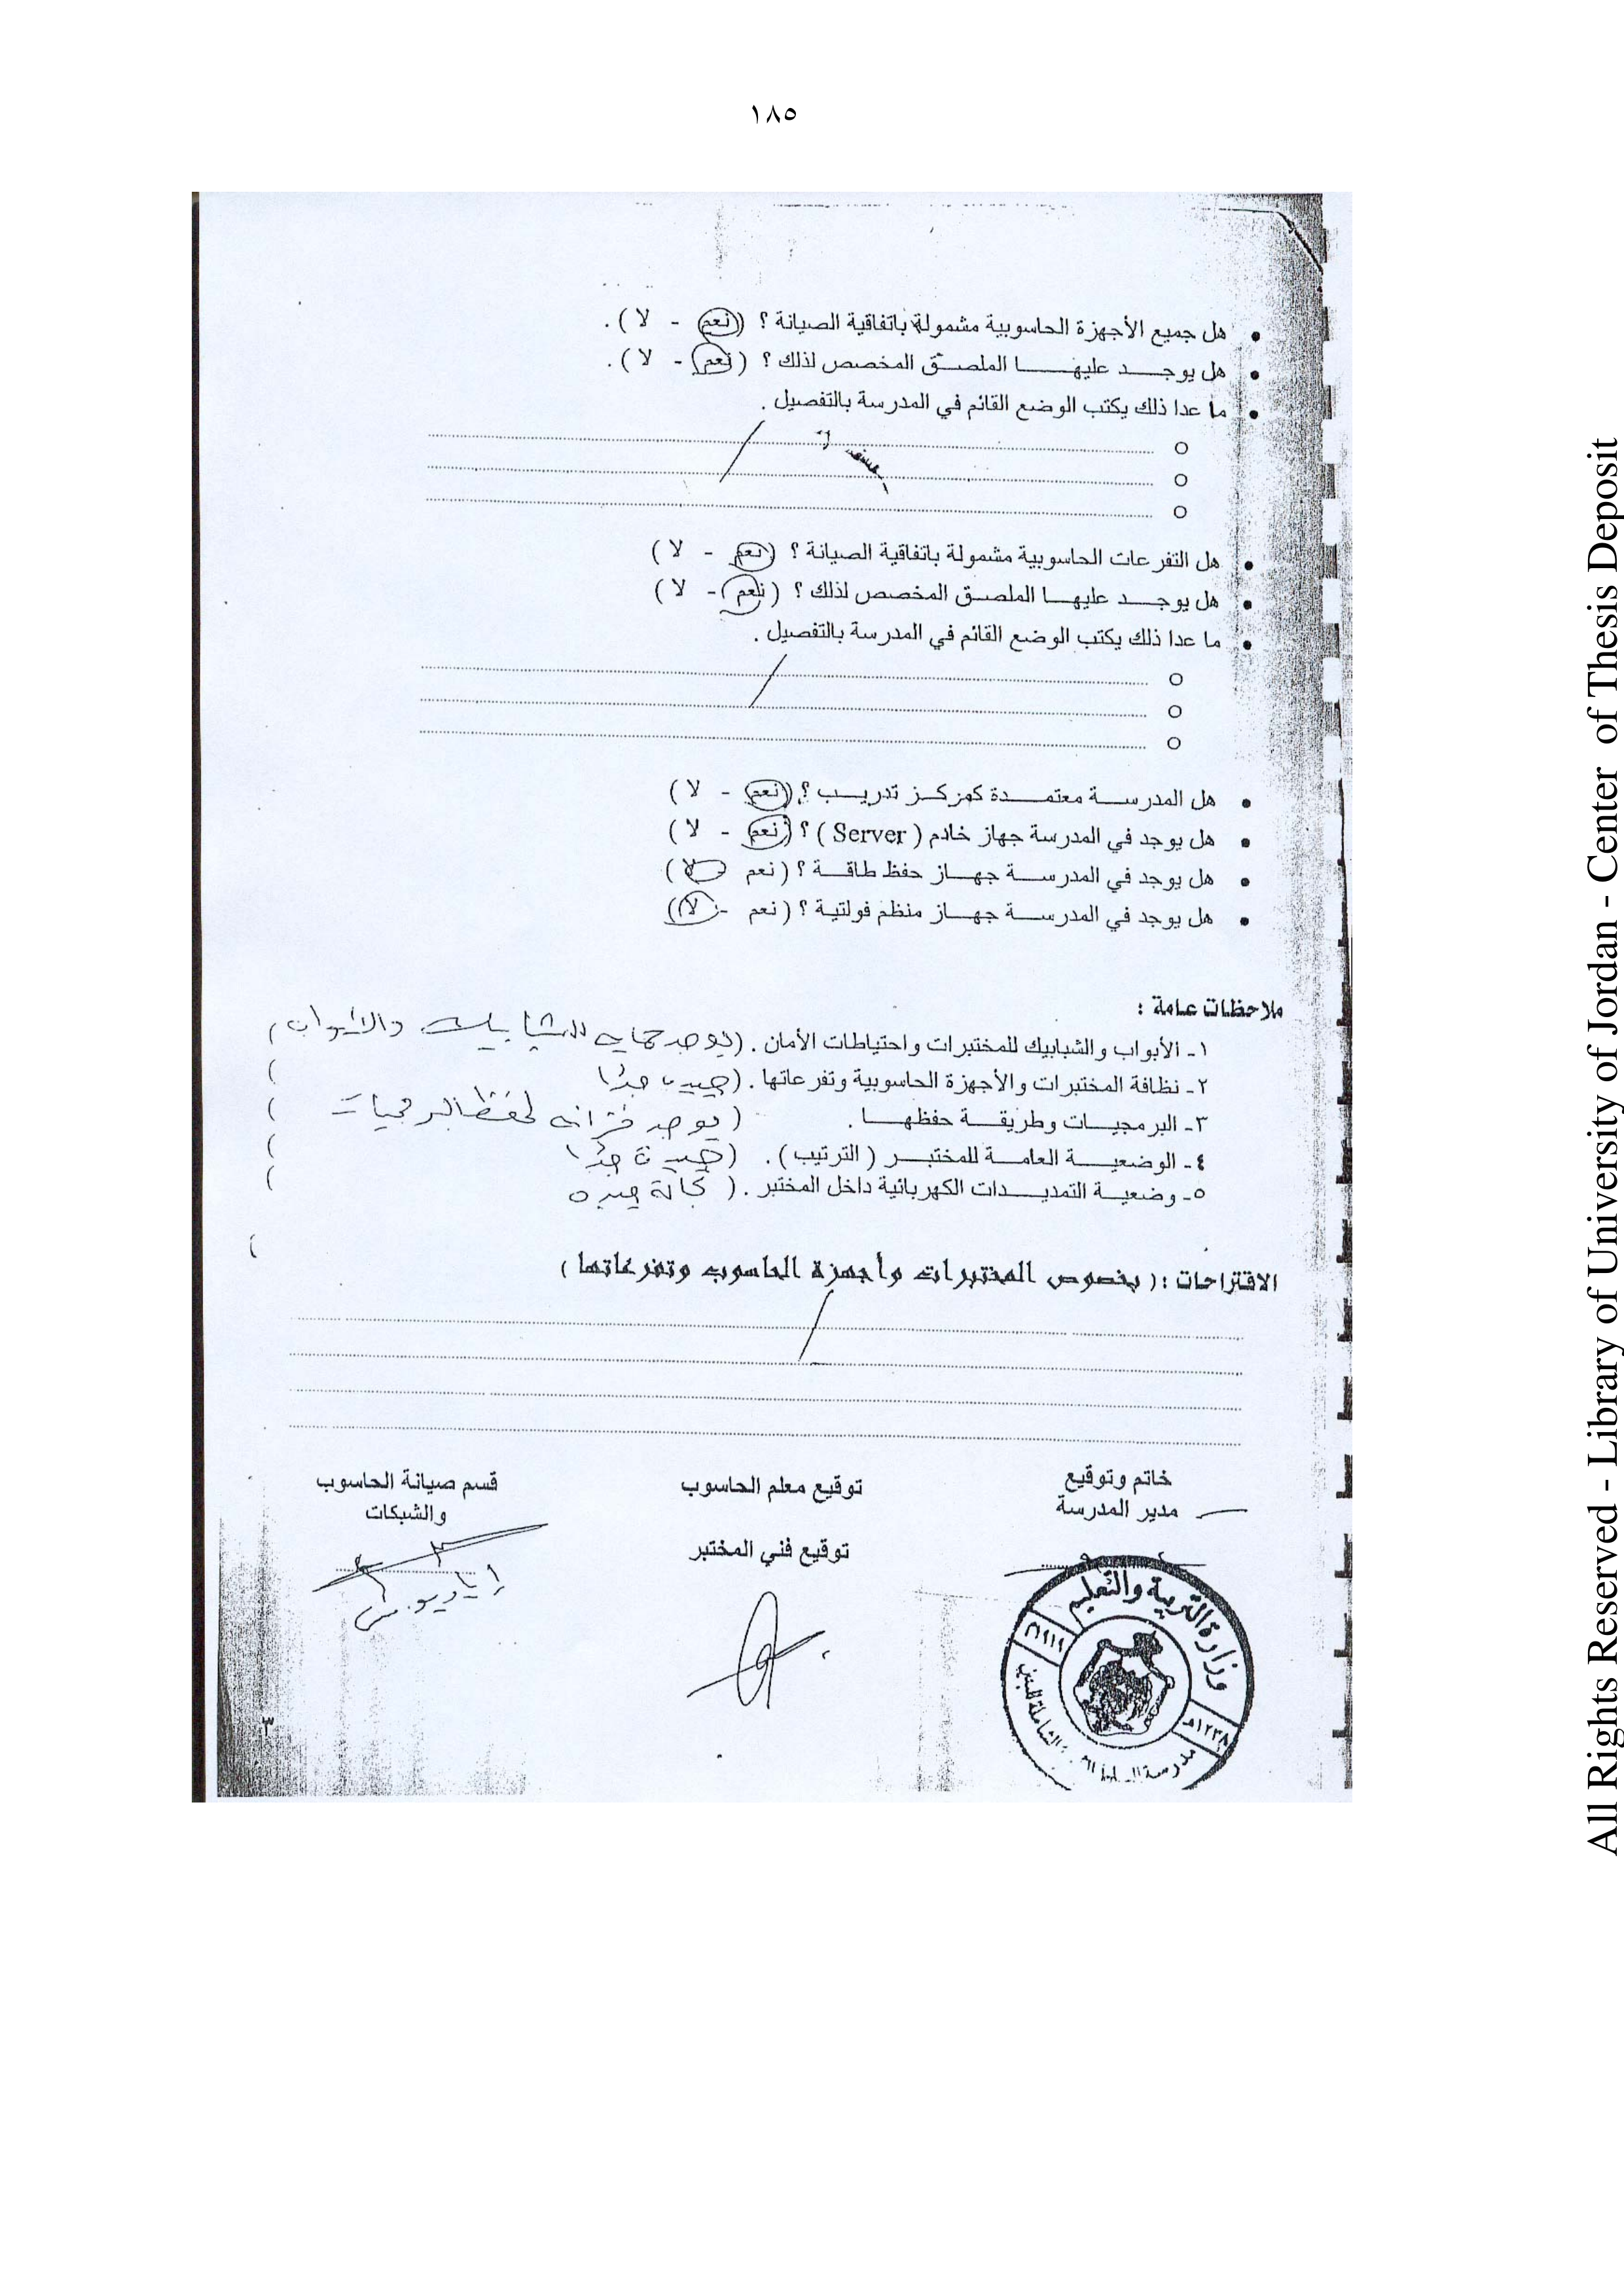 ١٨٥
هل جميع الأجهزة الحاسوبية مشمولة باتفاقية الصيانة ؟ (نعم - لا ) .
هل يوجد عليها الملصق المخصص لذلك ؟ ( نعم - لا ) .
ما عدا ذلك يكتب الوضع القائم في المدرسة بالتفصيل .
هل التفرعات الحاسوبية مشمولة باتفاقية الصيانة ؟ (نعم - لا )
هل يوجد عليها الملصق المخصص لذلك ؟ ( نعم - لا )
ما عدا ذلك يكتب الوضع القائم في المدرسة بالتفصيل .
هل المدرسة معتمدة كمركز تدريب ؟ (نعم - لا )
هل يوجد في المدرسة جهاز خادم ( Server ) ؟ (نعم - لا )
هل يوجد في المدرسة جهاز حفظ طاقة ؟ ( نعم - لا )
هل يوجد في المدرسة جهاز منظم فولتية ؟ ( نعم - لا )
ملاحظات عامة :
١- الأبواب والشبابيك للمختبرات واحتياطات الأمان . (يوجد حمايه للشبابيك والابواب )
٢- نظافة المختبرات والأجهزة الحاسوبية وتفرعاتها . (جيده جدًا )
٣- البرمجيات وطريقة حفظها . ( يوجد خزانه لحفظ البرمجيات )
٤- الوضعية العامة للمختبر ( الترتيب ) . (جيدة جدًا )
٥- وضعية التمديدات الكهربائية داخل المختبر . ( بحالة جيده )
الاقتراحات : ( بخصوص المختبرات وأجهزة الحاسوب وتفرعاتها )
خاتم وتوقيع
مدير المدرسة
توقيع معلم الحاسوب
توقيع فني المختبر
قسم صيانة الحاسوب
والشبكات
وزارة التربية والتعليم
٣
All Rights Reserved - Library of University of Jordan - Center of Thesis Deposit